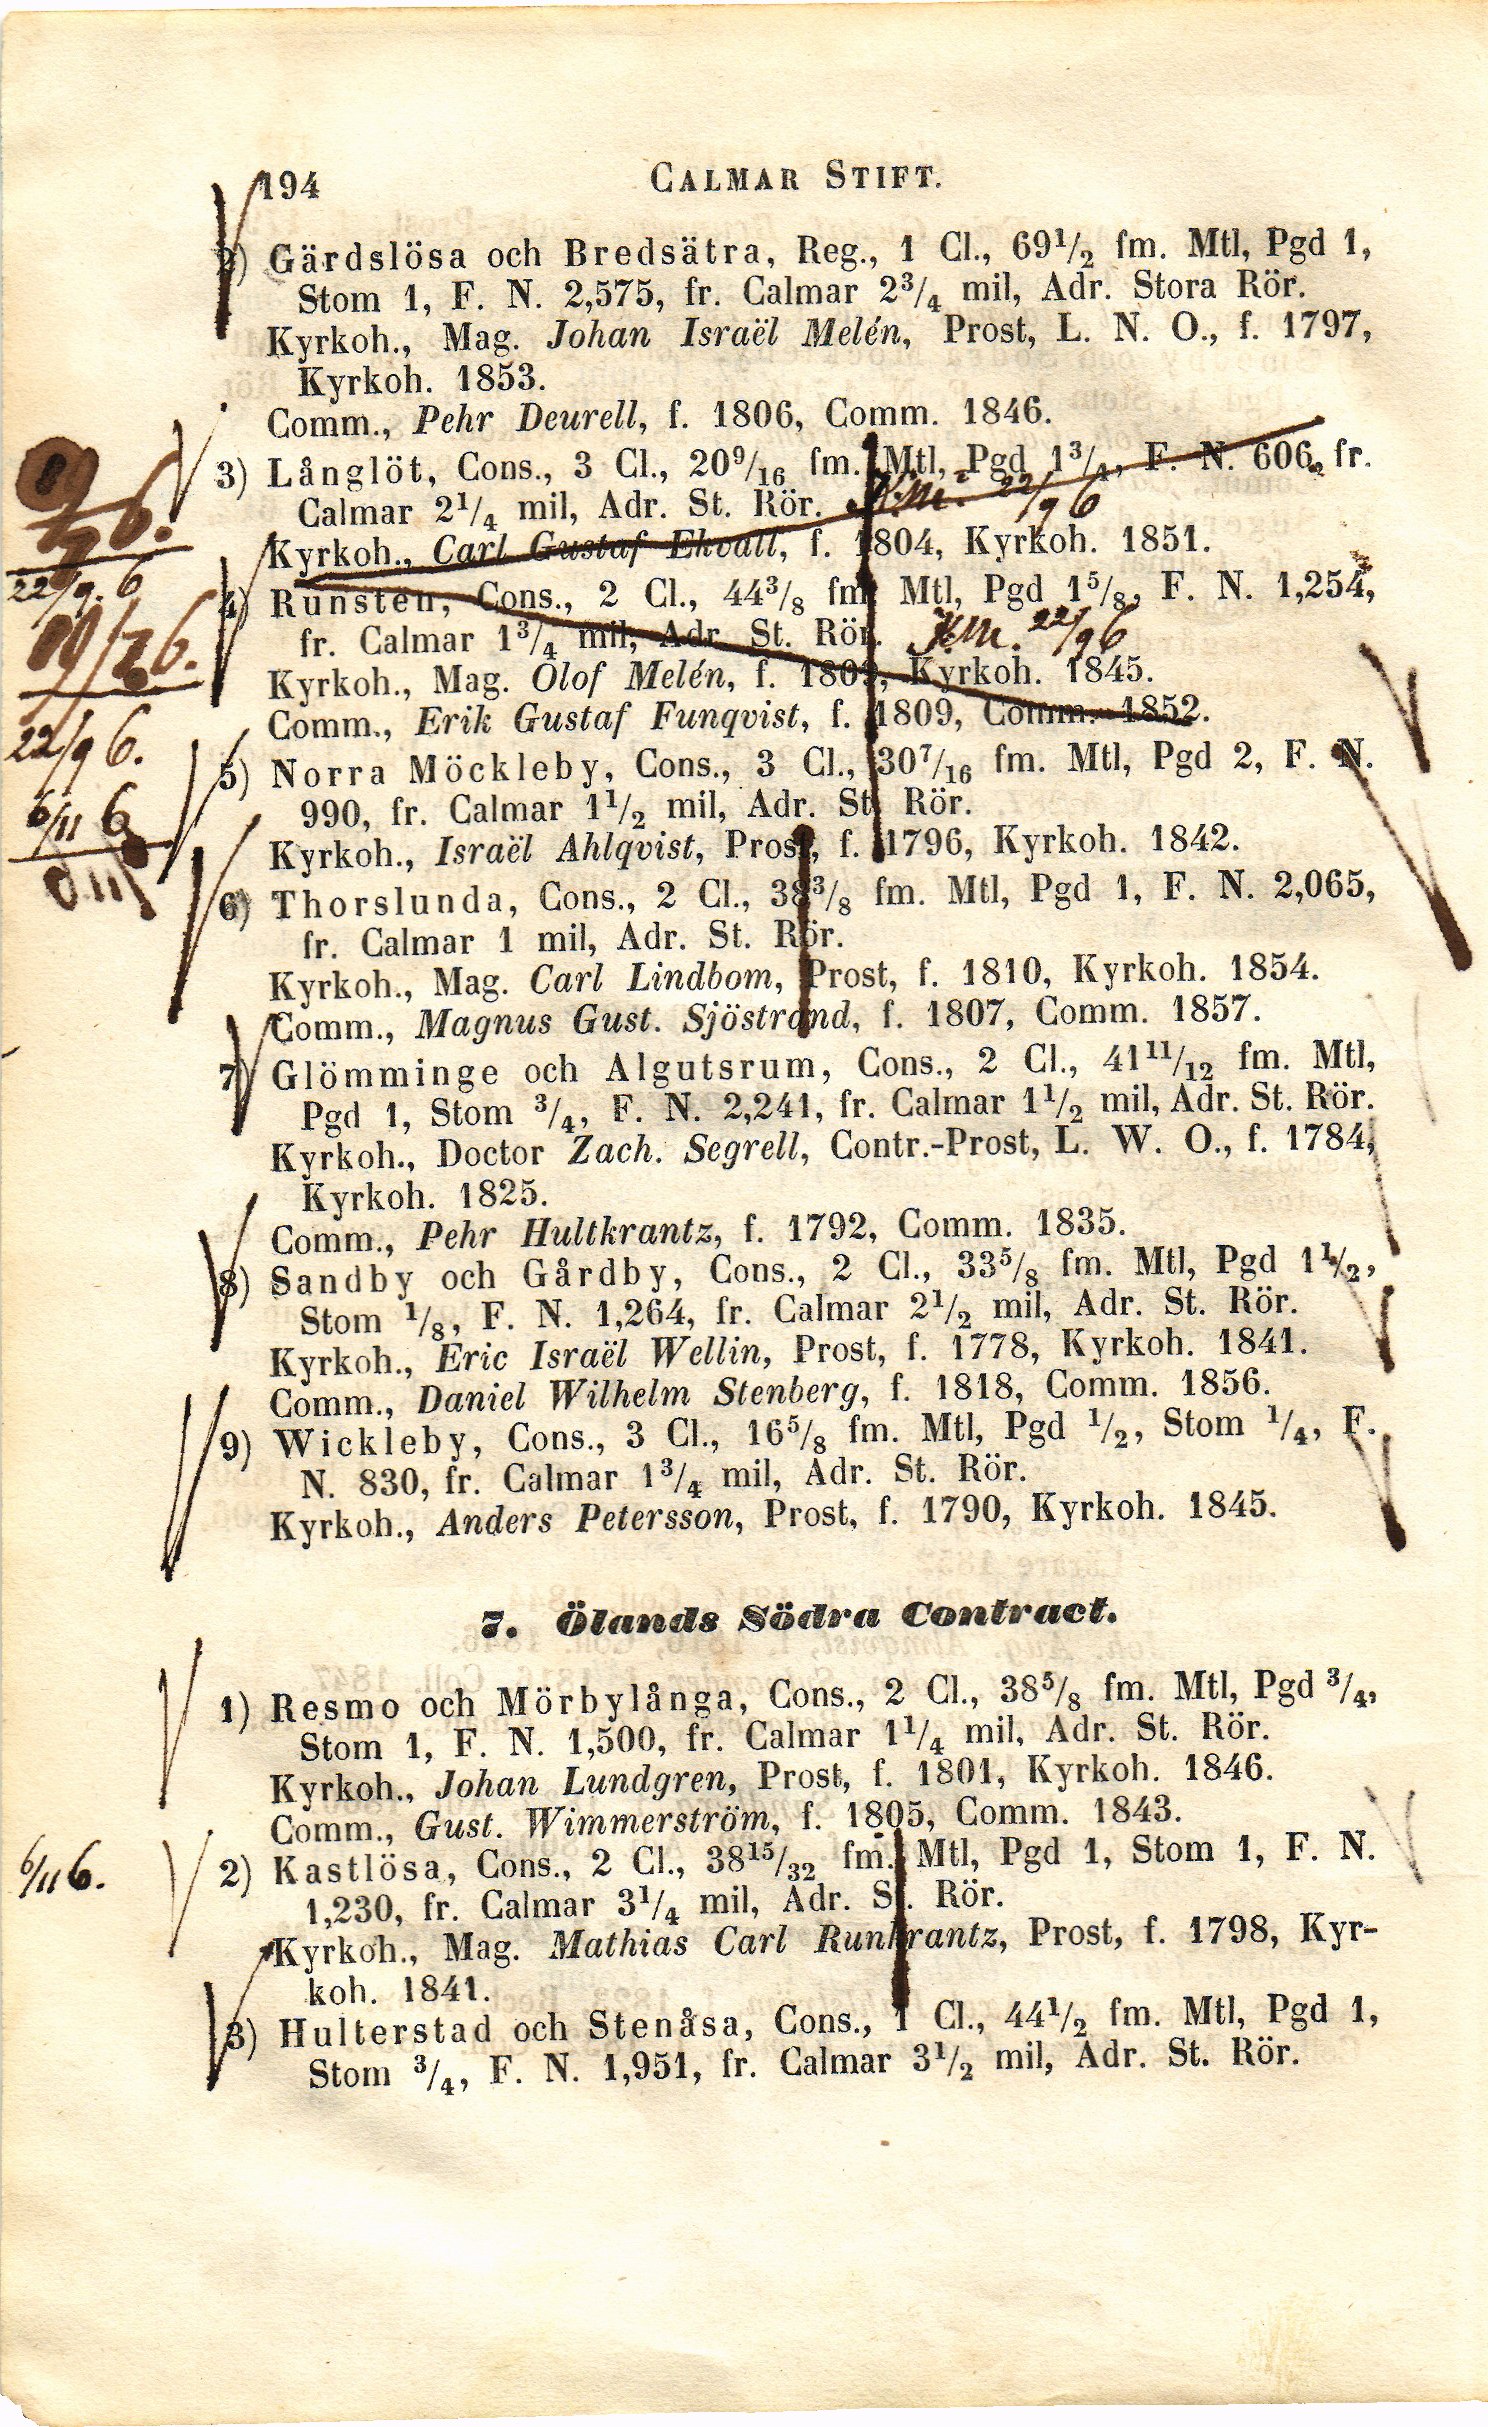 194 CALMAR STIFT.
2) Gärdslösa och Bredsätra, Reg., 1 Cl., 69 1/2 fm. Mtl, Pgd 1,
Stom 1, F. N. 2,575, fr. Calmar 2 3/4 mil, Adr. Stora Rör.
Kyrkoh., Mag. Johan Israël Melén, Prost, L. N. O., f. 1797,
Kyrkoh. 1853.
Comm., Pehr Deurell, f. 1806, Comm. 1846.
3) Långlöt, Cons., 3 Cl., 20 9/16 fm. Mtl, Pgd 1 3/4, F. N. 606, fr.
Calmar 2 1/4 mil, Adr. St. Rör. K.M. 22/9 6
Kyrkoh., Carl Gustaf Ekvall, f. 1804, Kyrkoh. 1851.
22/9. 6
4) Runsten, Cons., 2 Cl., 44 3/8 fm. Mtl, Pgd 1 5/8, F. N. 1,254,
fr. Calmar 1 3/4 mil, Adr. St. Rör. K.M. 22/9 6
Kyrkoh., Mag. Olof Melén, f. 1803, Kyrkoh. 1845.
Comm., Erik Gustaf Funqvist, f. 1809, Comm. 1852.
22/9 6.
5) Norra Möckleby, Cons., 3 Cl., 30 7/16 fm. Mtl, Pgd 2, F. N.
990, fr. Calmar 1 1/2 mil, Adr. St. Rör.
6/11 6
Kyrkoh., Israël Ahlqvist, Prost, f. 1796, Kyrkoh. 1842.
6) Thorslunda, Cons., 2 Cl., 38 3/8 fm. Mtl, Pgd 1, F. N. 2,065,
fr. Calmar 1 mil, Adr. St. Rör.
Kyrkoh., Mag. Carl Lindbom, Prost, f. 1810, Kyrkoh. 1854.
Comm., Magnus Gust. Sjöstrand, f. 1807, Comm. 1857.
7) Glömminge och Algutsrum, Cons., 2 Cl., 41 11/12 fm. Mtl,
Pgd 1, Stom 3/4, F. N. 2,241, fr. Calmar 1 1/2 mil, Adr. St. Rör.
Kyrkoh., Doctor Zach. Segrell, Contr.-Prost, L. W. O., f. 1784,
Kyrkoh. 1825.
Comm., Pehr Hultkrantz, f. 1792, Comm. 1835.
8) Sandby och Gårdby, Cons., 2 Cl., 33 5/8 fm. Mtl, Pgd 1 1/2,
Stom 1/8, F. N. 1,264, fr. Calmar 2 1/2 mil, Adr. St. Rör.
Kyrkoh., Eric Israël Wellin, Prost, f. 1778, Kyrkoh. 1841.
Comm., Daniel Wilhelm Stenberg, f. 1818, Comm. 1856.
9) Wickleby, Cons., 3 Cl., 16 5/8 fm. Mtl, Pgd 1/2, Stom 1/4, F.
N. 830, fr. Calmar 1 3/4 mil, Adr. St. Rör.
Kyrkoh., Anders Petersson, Prost, f. 1790, Kyrkoh. 1845.
7. Ölands Södra Contract.
1) Resmo och Mörbylånga, Cons., 2 Cl., 38 5/8 fm. Mtl, Pgd 3/4,
Stom 1, F. N. 1,500, fr. Calmar 1 1/4 mil, Adr. St. Rör.
Kyrkoh., Johan Lundgren, Prost, f. 1801, Kyrkoh. 1846.
Comm., Gust. Wimmerström, f. 1805, Comm. 1843.
6/11 6.
2) Kastlösa, Cons., 2 Cl., 38 15/32 fm. Mtl, Pgd 1, Stom 1, F. N.
1,230, fr. Calmar 3 1/4 mil, Adr. St. Rör.
Kyrkoh., Mag. Mathias Carl Runkrantz, Prost, f. 1798, Kyr-
koh. 1841.
3) Hulterstad och Stenåsa, Cons., 1 Cl., 44 1/2 fm. Mtl, Pgd 1,
Stom 3/4, F. N. 1,951, fr. Calmar 3 1/2 mil, Adr. St. Rör.